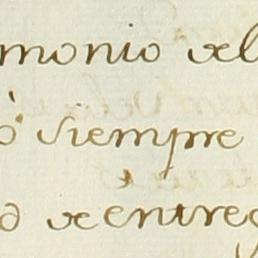 monio del
ò siempre
d de entreg